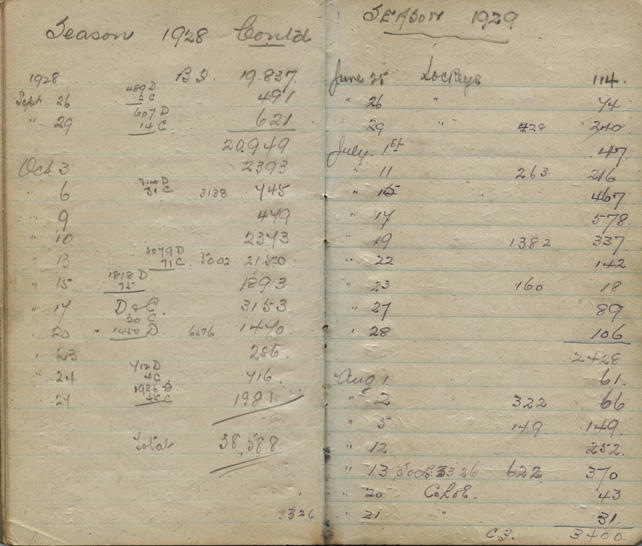 Season 1928 Cont'd
1928 B.F. 19.837
Sept 26 489 D 2 C 491
" 29 607 D 14 C 621
20.949
Oct 3 2393
" 6 714 D 31 C 3138 745
" 9 479
" 10 2373
" 13 2079 D 71 C. 5002 2150
" 15 1818 D 75 1893
" 17 D & C. 3153
" 20 20 C " 1450 D 1470
" 23 286.
" 24 712 D 4 C 716.
" 27 1936 D 45 C 1981
Total 38,588
3326
SEASON 1929
June 25 Sockeye 114.
" 26 " 74
" 29 " 428 240
July 1st 47
" 11 263 216
" 15 467
" 17 578
" 19 1382 337
" 22 142
" 23 160 18
" 27 89
" 28 106
2428
Aug 1 61.
" 2 322 66
" 5 149 149.
" 12 252.
" 13 Sock. 3326 622 370
" 20 Cohoe. 43
" 21 " 31
C.F. 3400.